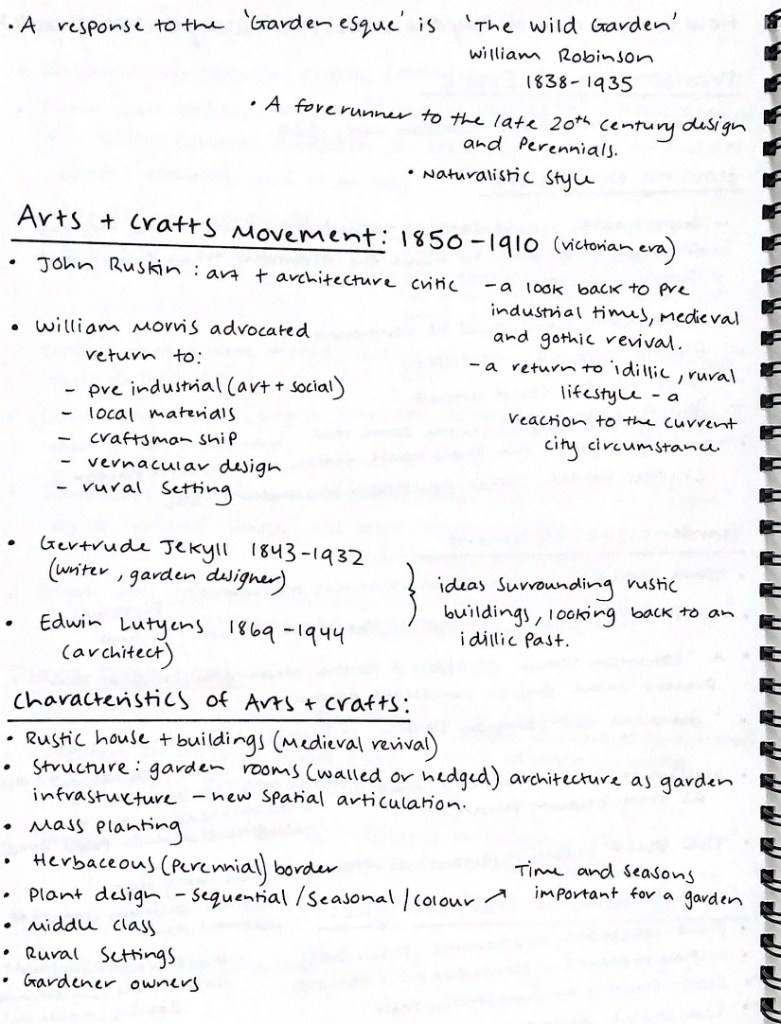 • A response to the 'Gardenesque' is 'The Wild Garden'
William Robinson
1838-1935
• A forerunner to the late 20th century design
and Perennials.
• Naturalistic Style
Arts + Crafts Movement: 1850-1910 (victorian era)
• John Ruskin : art + architecture critic
- a look back to pre
industrial times, Medieval
and gothic revival.
- a return to idillic, rural
lifestyle - a
reaction to the current
city circumstance.
• William Morris advocated
return to:
- pre industrial (art + social)
- local materials
- craftsmanship
- vernacular design
- rural Setting
• Gertrude Jekyll 1843-1932
(writer, garden designer)
• Edwin Lutyens 1869-1944
(architect)
} ideas surrounding rustic
buildings, looking back to an
idillic Past.
Characteristics of Arts + Crafts:
• Rustic house + buildings (Medieval revival)
• Structure : garden rooms (walled or hedged) architecture as garden
infrastuxture - new spatial articulation.
• Mass Planting
• Herbaceous (Perennial) border
• Plant design - Sequential / Seasonal / colour ↗ Time and seasons
important for a garden
• Middle class
• Rural Settings
• Gardener owners